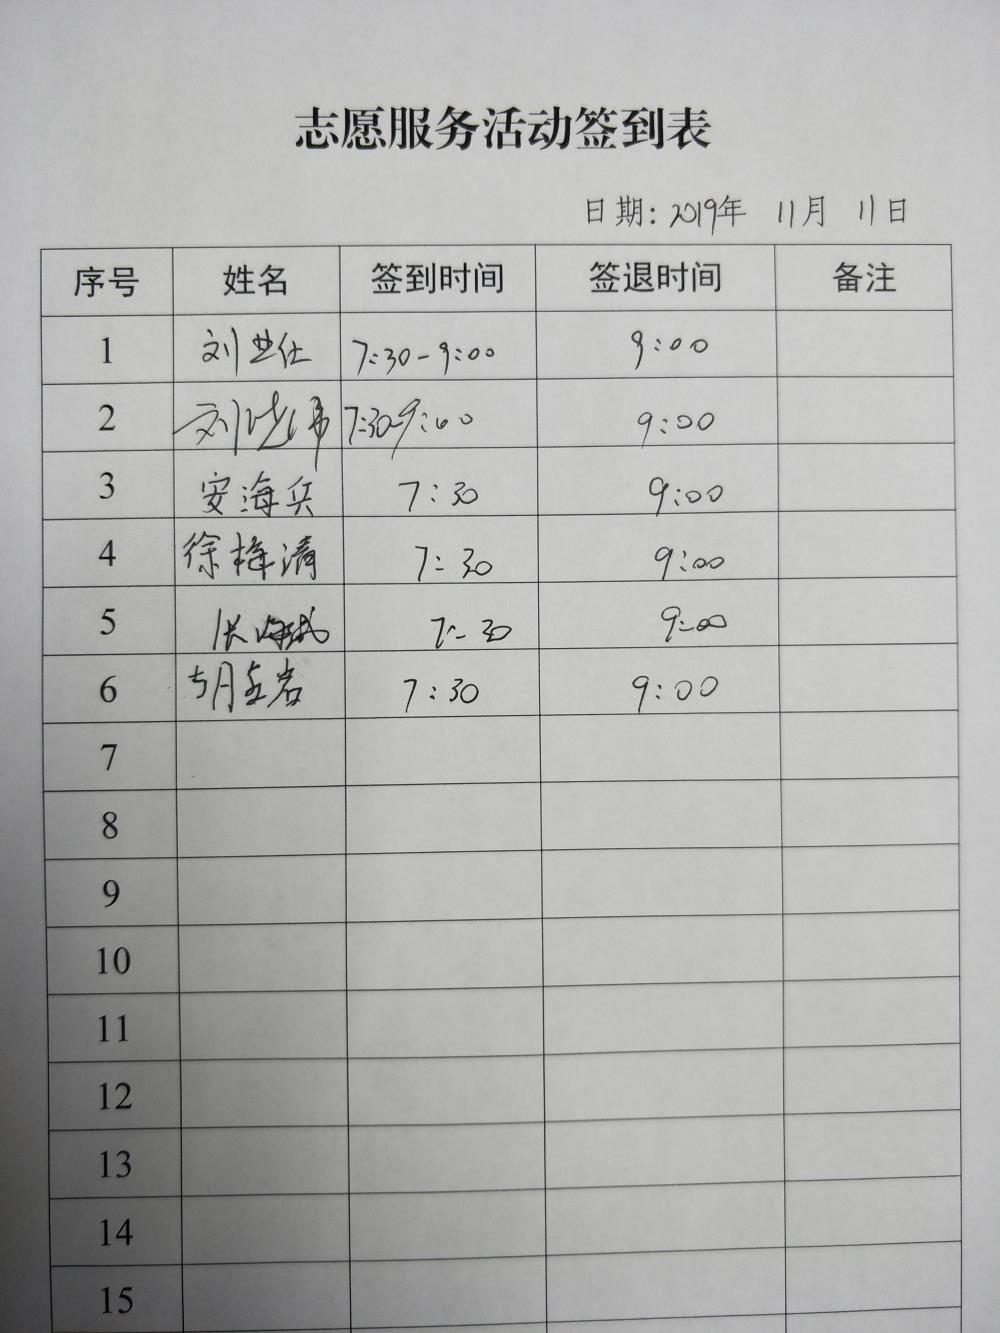 志愿服务活动签到表
日期: 2019年 11月 11日
序号 姓名 签到时间 签退时间 备注
1 刘世仕 7:30-9:00 9:00
2 刘 7:30-9:00 9:00
3 安海兵 7:30 9:00
4 徐梅清 7:30 9:00
5 张海斌 7:30 9:00
6 胡 岩 7:30 9:00
7
8
9
10
11
12
13
14
15